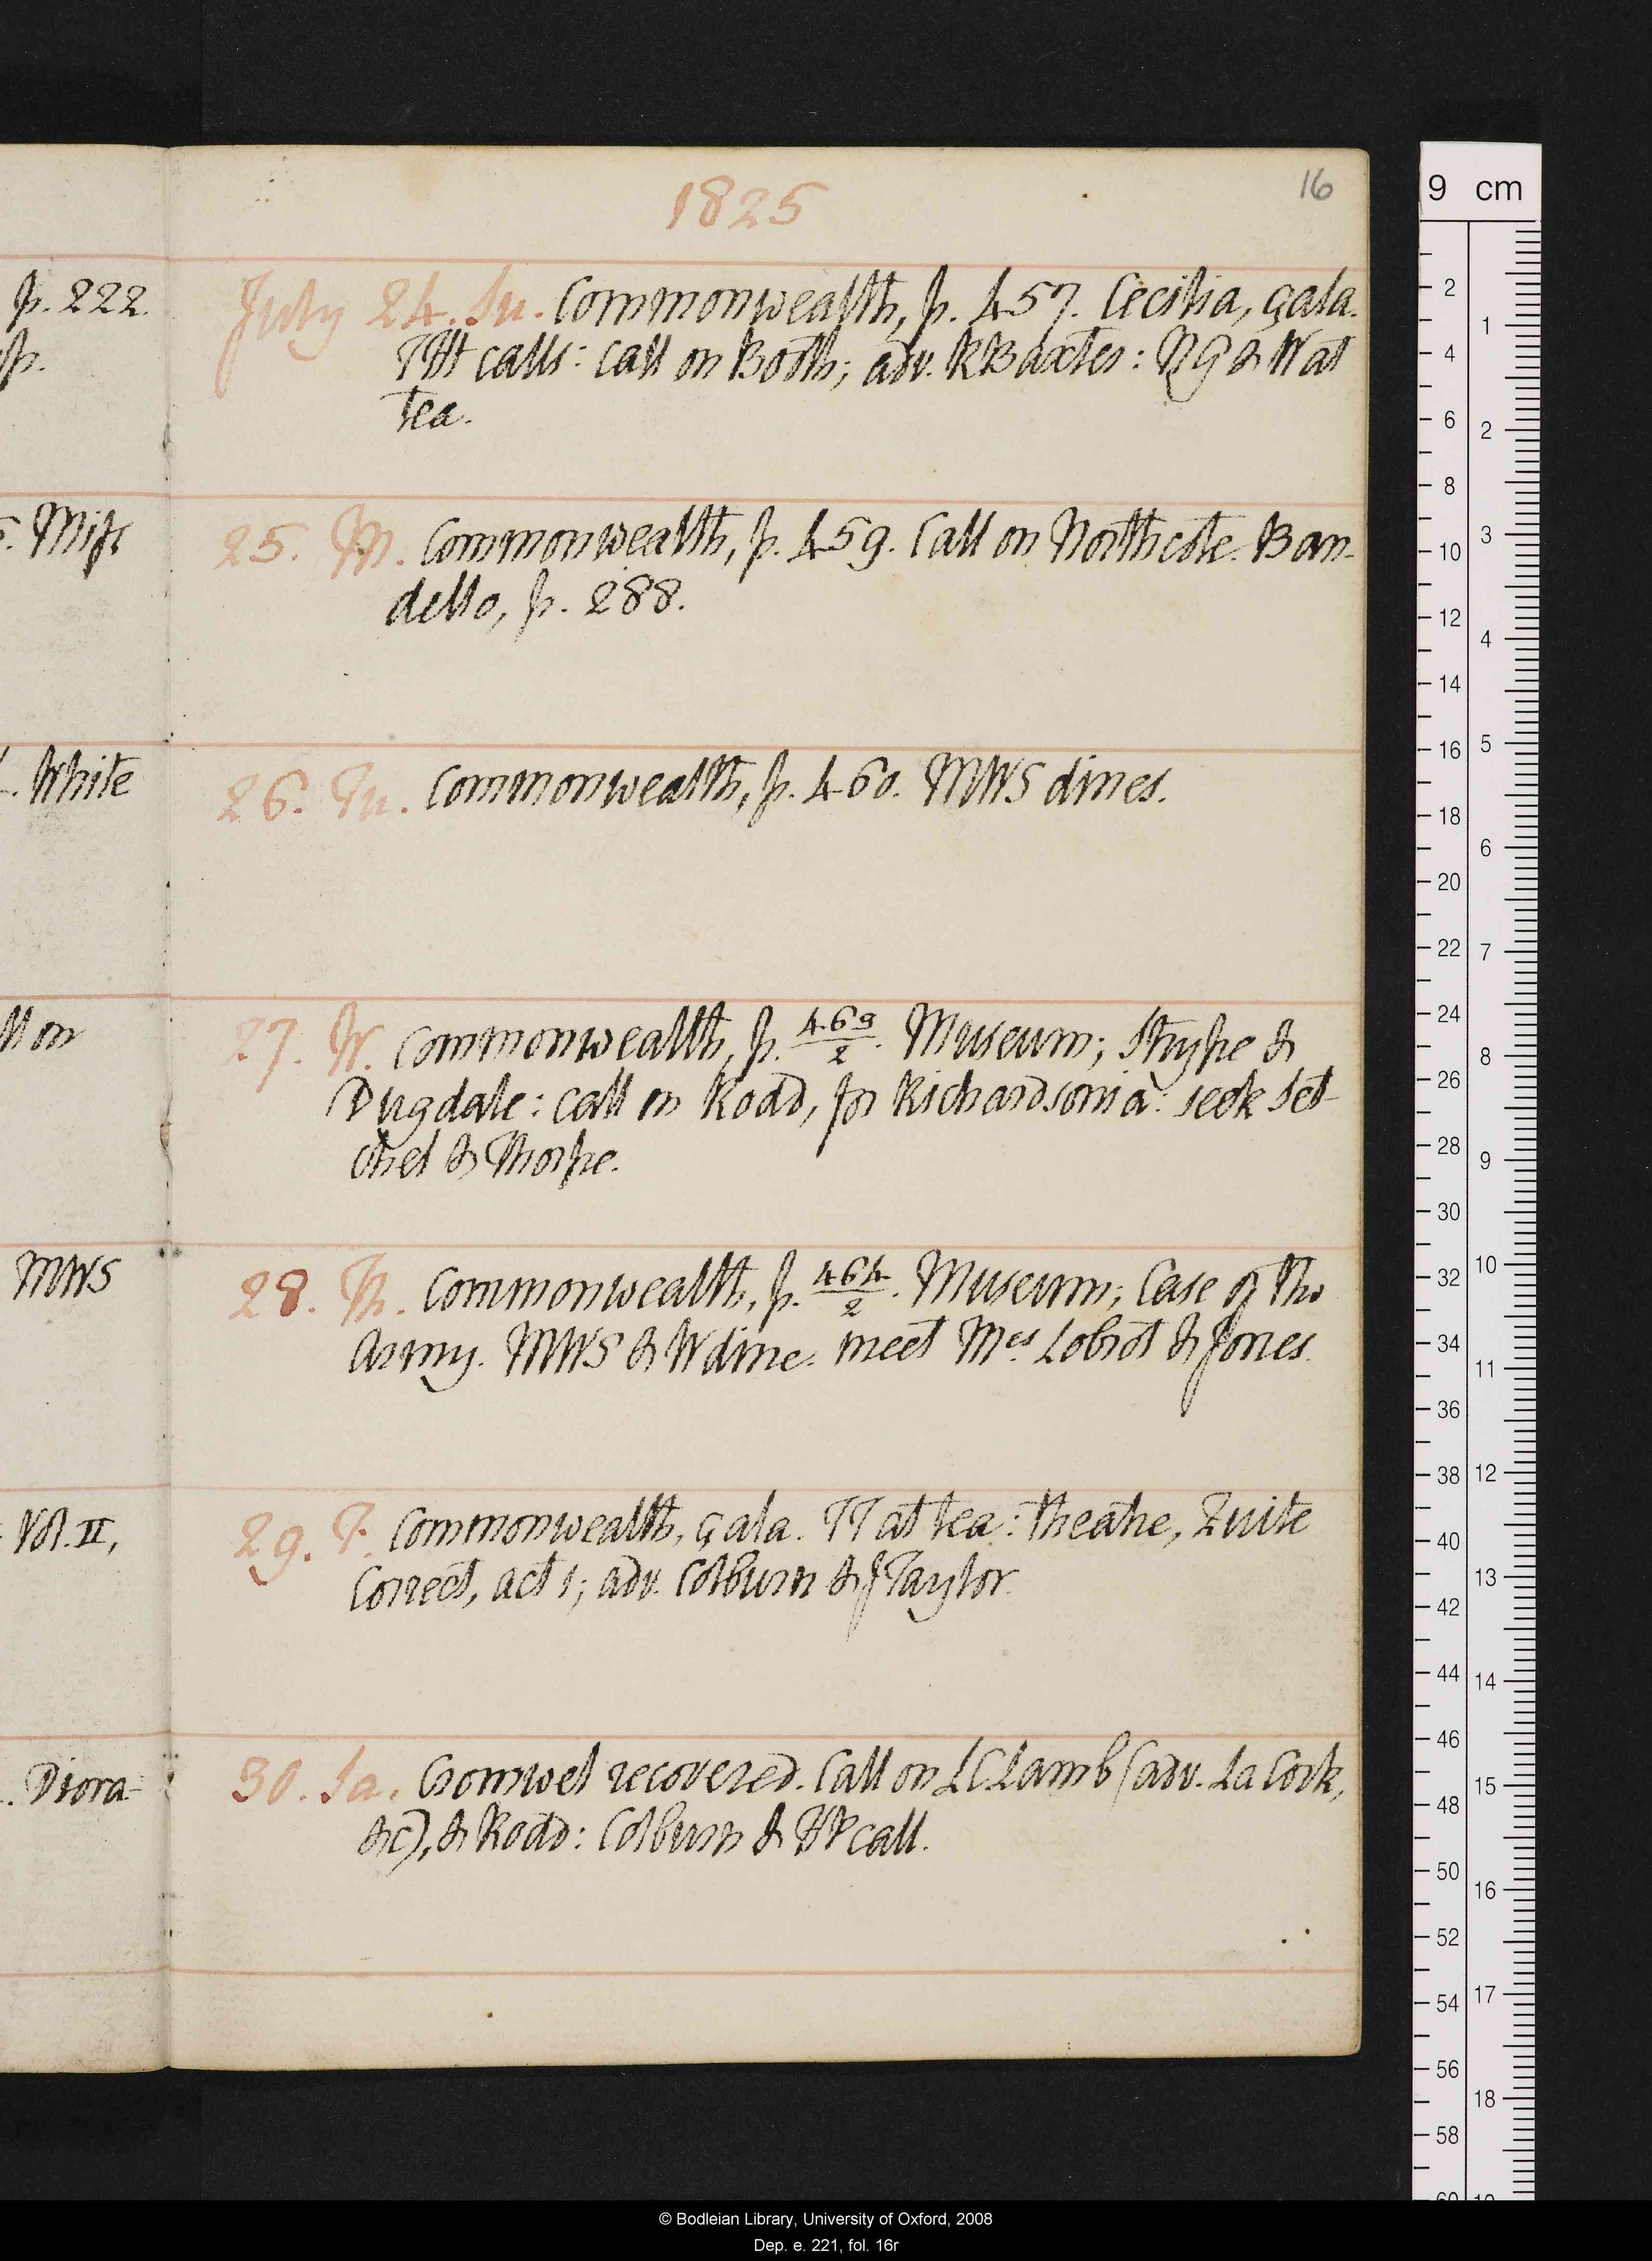 16
1825
p. 222.
July 24. Su. Commonwealth, p. 457. Cecilia, çala.
THt calls: call on Booth; adv. RBaxter: NG & W at
tea.
Miss
25. M. Commonwealth, p. 459. Call on Northcote. Ban-
dello, p. 288.
White
26. Tu. Commonwealth, p. 460. MWS dines.
27. W. Commonwealth, p. 469/2. Museum; Strype &
Dugdale: call on Rodd, for Richardsonia: seek Set-
chel & Thorpe.
MWS
28. Th. Commonwealth, p. 464/2. Museum; Case of the
Army. MWS & W dine. meet Mes. Lobrot & Jones.
Vol. II,
29. F. Commonwealth, çala. TT at tea: theatre, Quite
Correct, act 1; adv. Colburn & JTaylor.
Diora-
30. Sa. Cromwel recovered. Call on LCLamb (adv. La Cork,
&c), & Rodd: Colburn & HP call.
9 cm
2
4
6
8
10
12
14
16
18
20
22
24
26
28
30
32
34
36
38
40
42
44
46
48
50
52
54
56
58
60
1
2
3
4
5
6
7
8
9
10
11
12
13
14
15
16
17
18
© Bodleian Library, University of Oxford, 2008
Dep. e. 221, fol. 16r